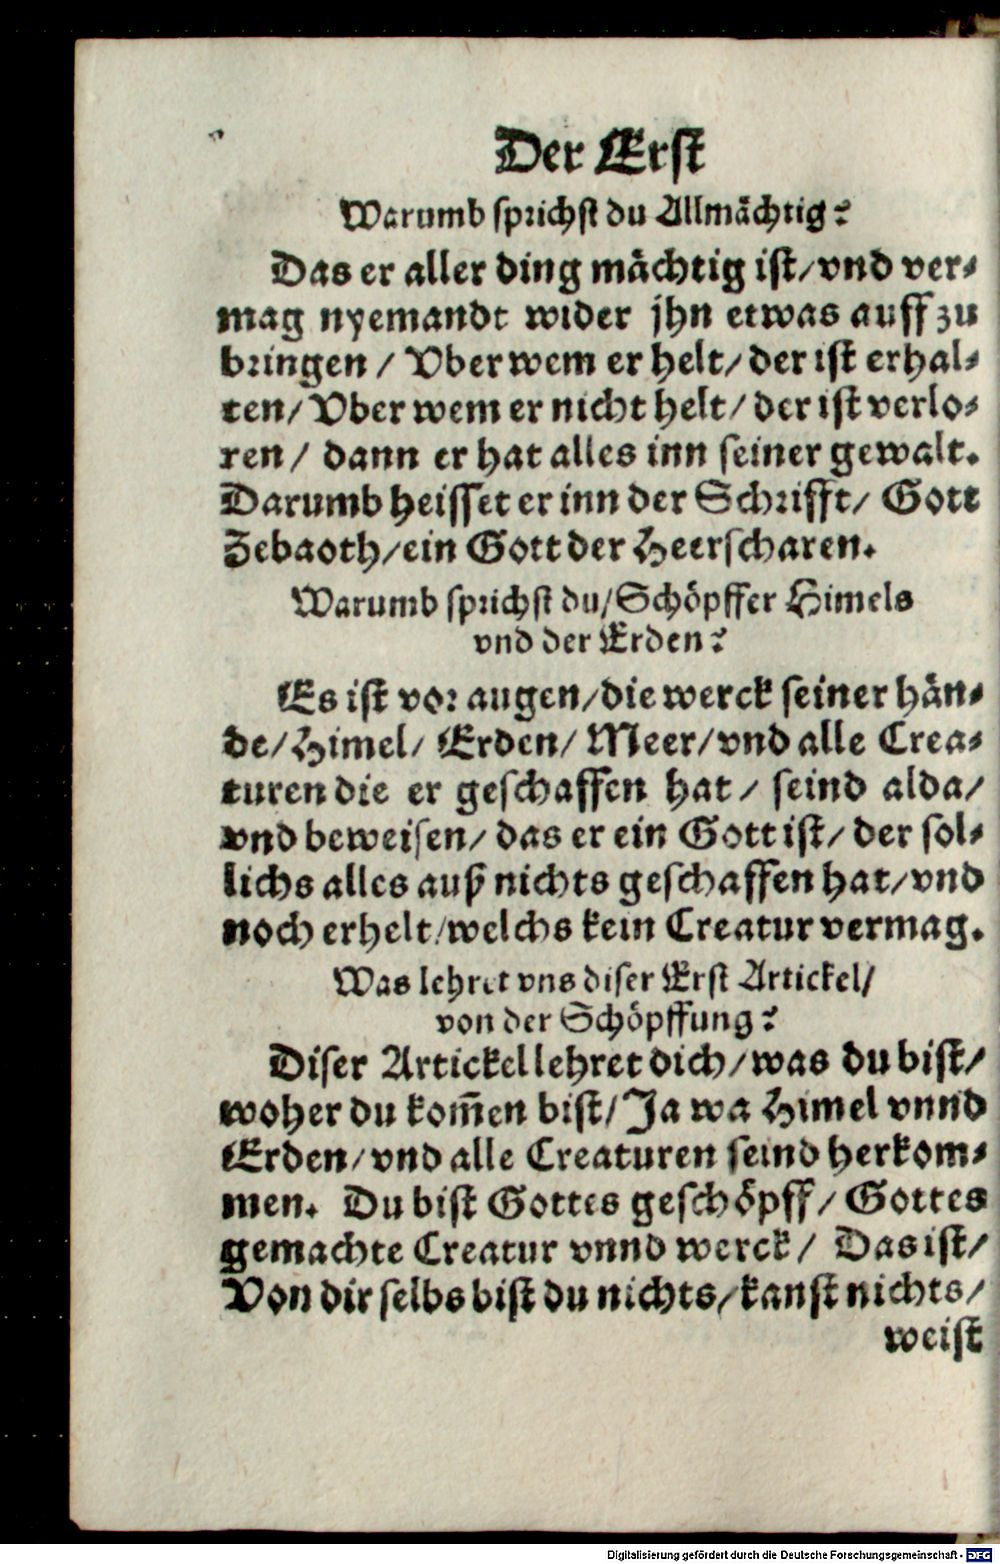 Der Erst
Warumb sprichst du Allmächtig?
Das er aller ding mächtig ist/vnd ver-
mag nyemandt wider jhn etwas auff zu
bringen / Vber wem er helt/der ist erhal-
ten/Vber wem er nicht helt/der ist verlo-
ren/ dann er hat alles inn seiner gewalt.
Darumb heisset er inn der Schrifft/ Gott
Zebaoth/ein Gott der Heerscharen.
Warumb sprichst du/Schöpffer Himels
vnd der Erden?
Es ist vor augen/die werck seiner hän-
de/Himel/ Erden/ Meer/vnd alle Crea-
turen die er geschaffen hat/ seind alda/
vnd beweisen/ das er ein Gott ist/ der sol-
lichs alles auß nichts geschaffen hat/vnd
noch erhelt/welchs kein Creatur vermag.
Was lehret vns diser Erst Artickel/
von der Schöpffung?
Diser Artickel lehret dich/was du bist/
woher du kom̃en bist/Ja wa Himel vnnd
Erden/vnd alle Creaturen seind herkom-
men. Du bist Gottes geschöpff/ Gottes
gemachte Creatur vnnd werck/ Das ist/
Von dir selbs bist du nichts/kanst nichts/
weist
Digitalisierung gefördert durch die Deutsche Forschungsgemeinschaft - DFG